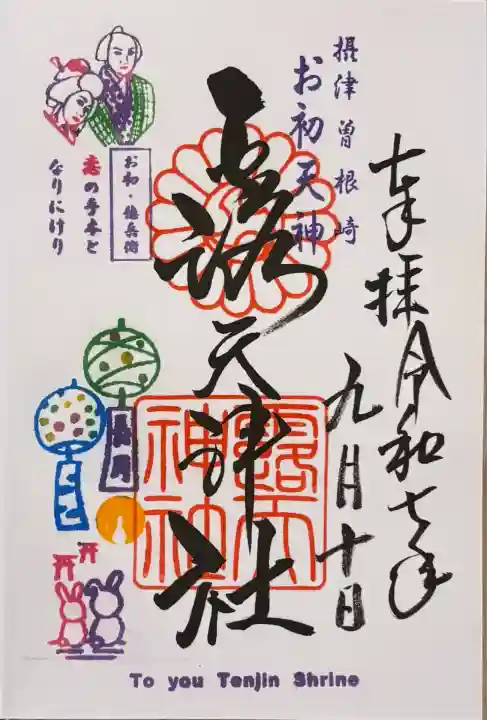 奉拝 令和七年
九月十日
摂津曽根崎
お初天神
露天神社
露天
神社
お初・徳兵衛
恋の手本と
なりにけり
長月
To you Tenjin Shrine